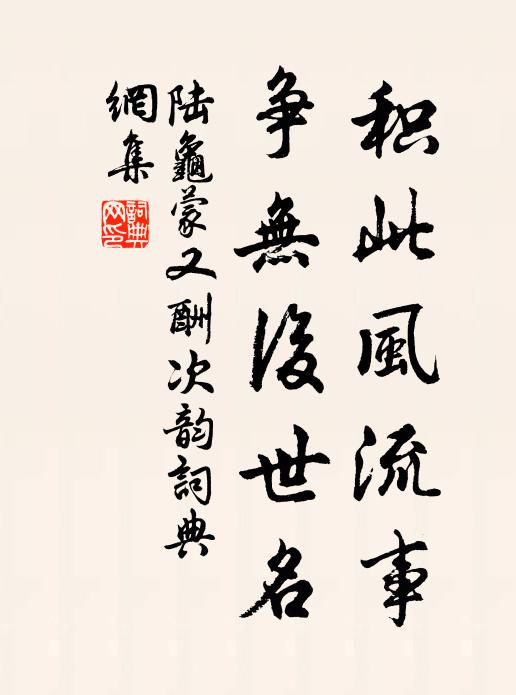 积此風流事
争無後世名
陆龜蒙又酬次韵詞典
網集
詞典網印